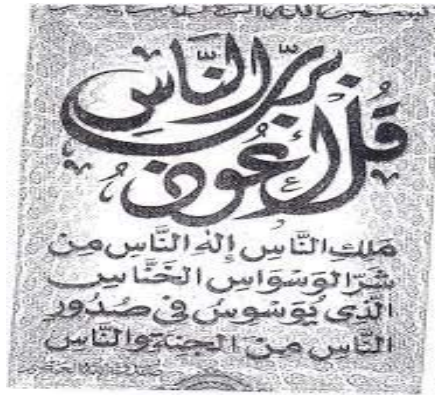 قُل أَعُوذ بِرَبِّ النَّاسِ
مَلِكِ النَّاسِ إِلٰهِ النَّاسِ مِنْ
شَرِّ الْوَسْوَاسِ الْخَنَّاسِ
الَّذِي يُوَسْوِسُ فِي صُدُورِ
النَّاسِ مِنَ الْجِنَّةِ وَالنَّاسِ